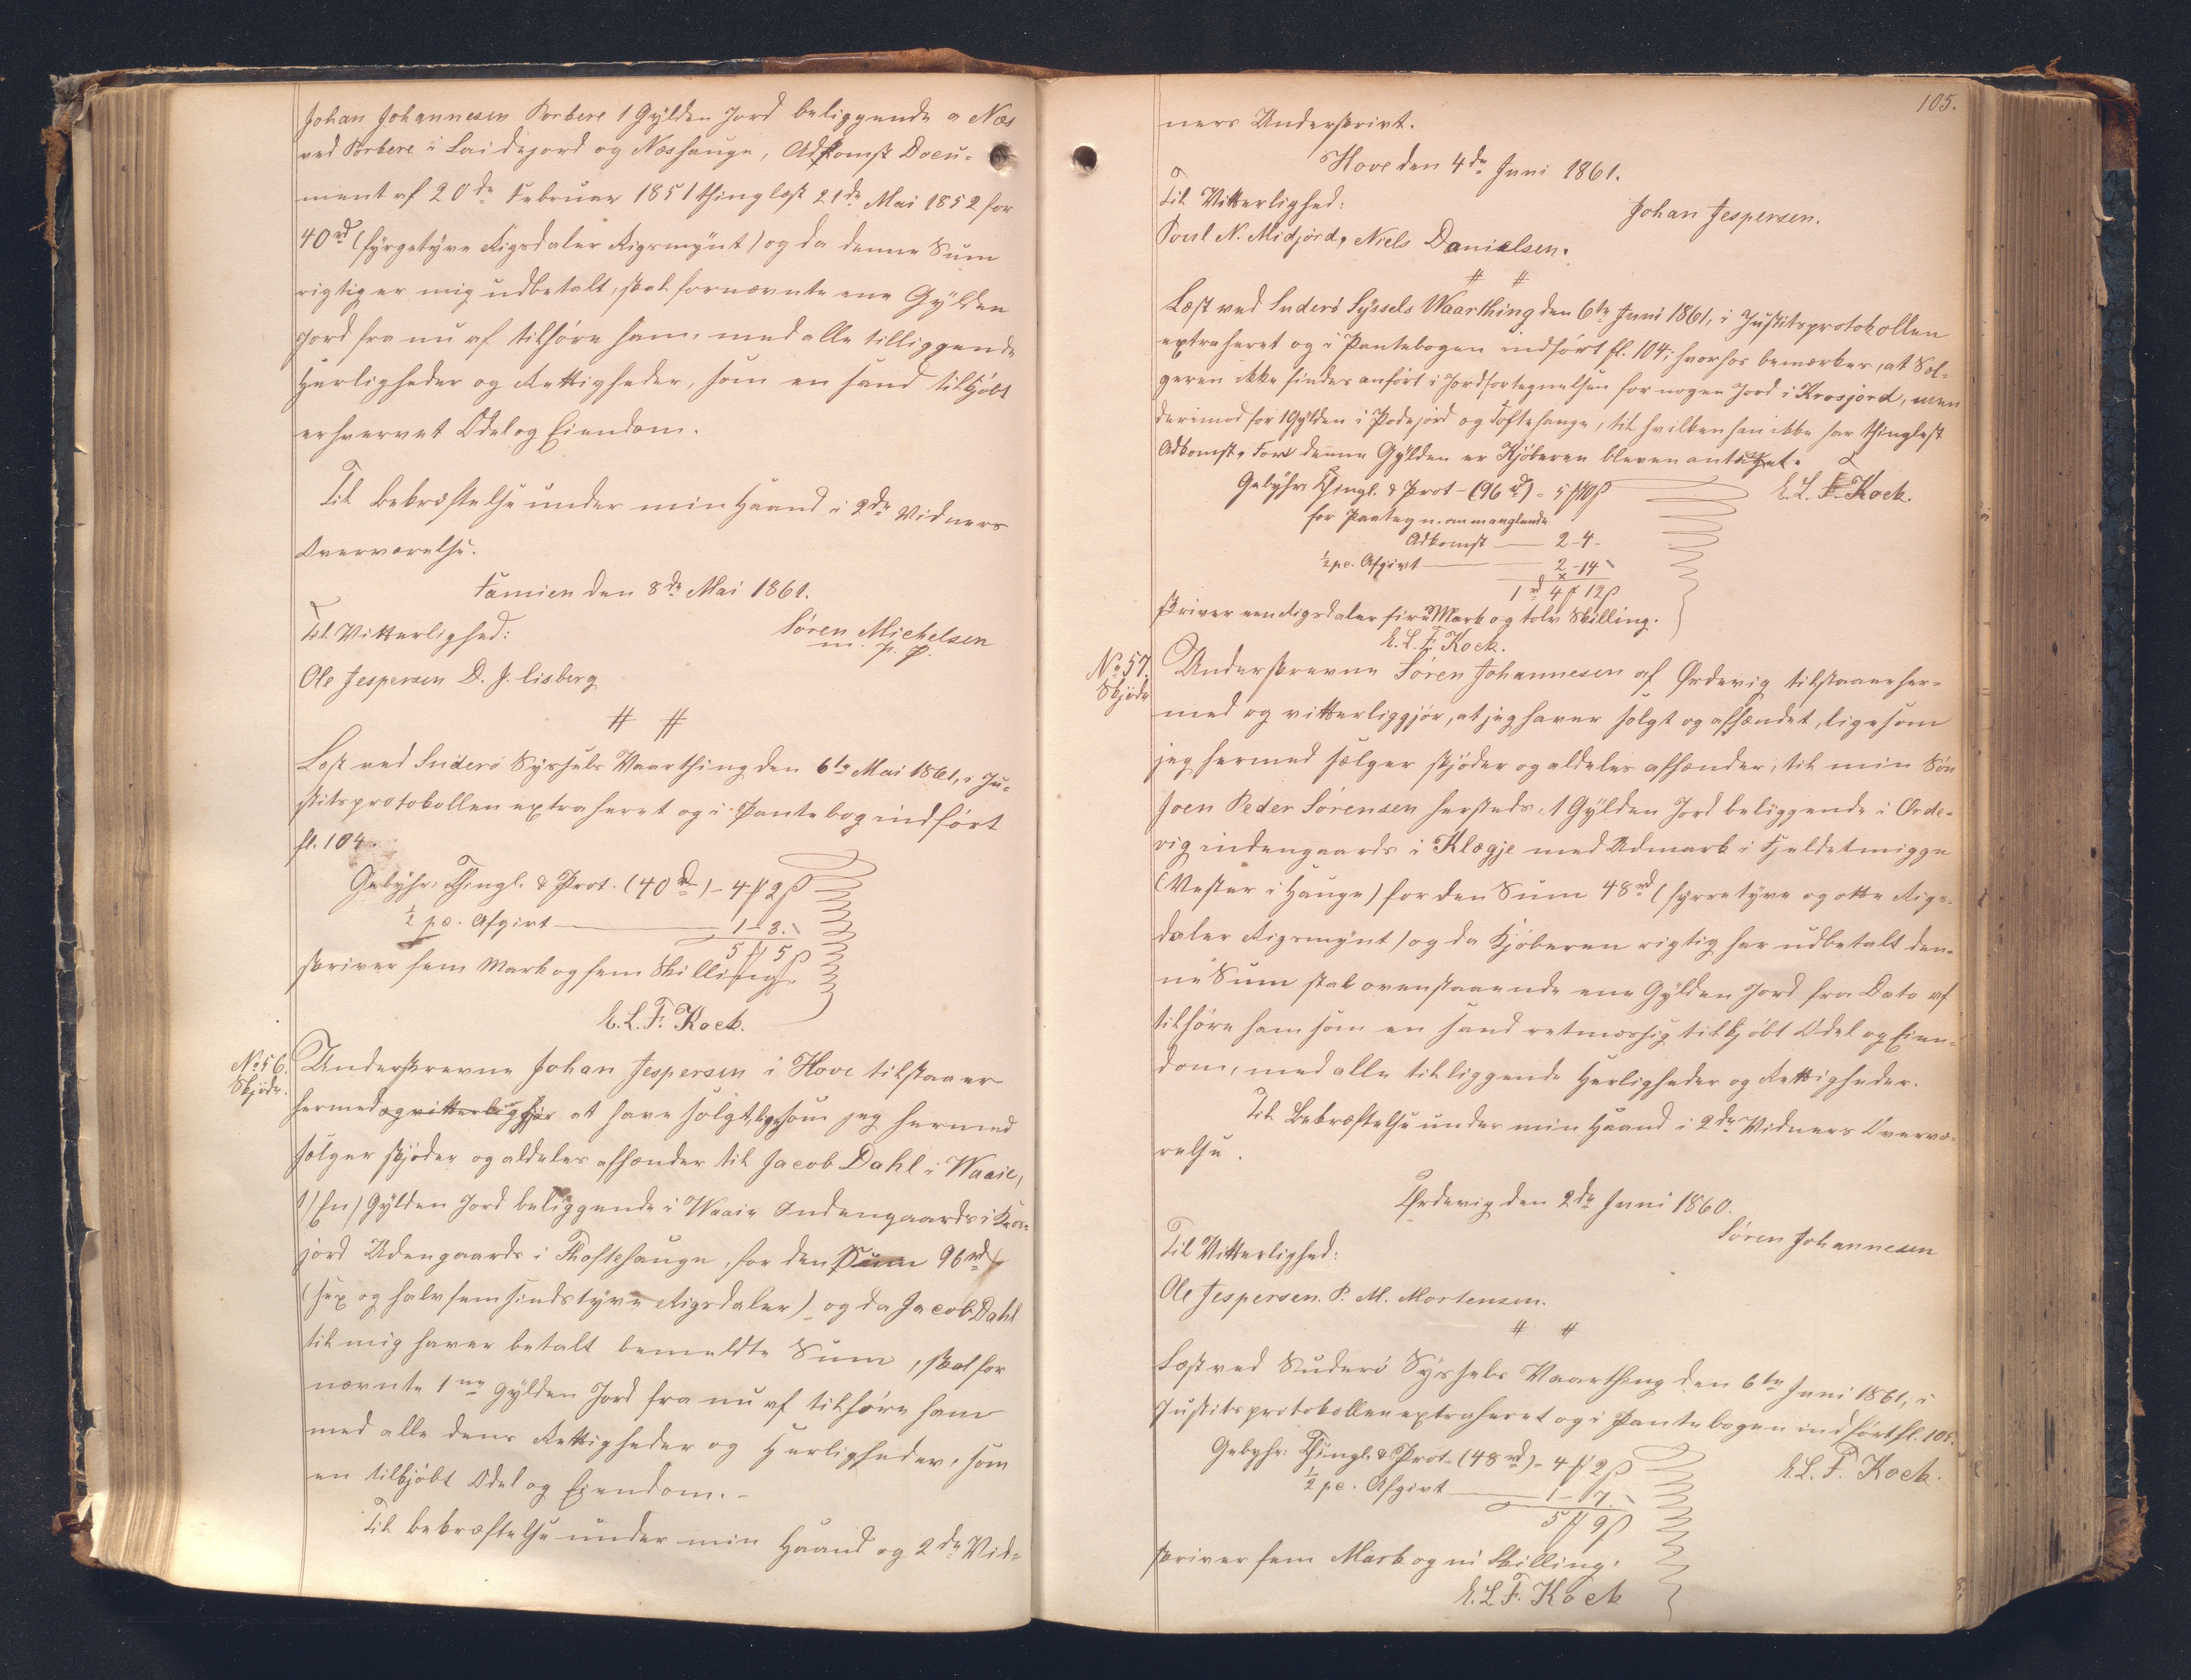 Johan Johannesen Porkere 1 Gylden Jord beliggende a Næs
ved Porkere i Laidejord og Næshauge, Adkomst Docu-
ment af 20de Februar 1851 thinglæst 21de Mai 1852 for
40rd (fyrgetyve Rigsdaler Rigsmynt) og da denne Sum
rigtig er mig udbetalt, skal fornævnte ene Gylden
Jord fra nu af tilhøre ham, med alle tilliggende
Herligheder og Rettigheder, som en sand tilkjøbt
erhvervet Odel og Eiendom.
Til Bekræftelse under min Haand i 2de Vidners
Overværelse.
Famien den 8de Mai 1861.
Til Vitterlighed:
Søren Michelsen
m. p. p.
Ole Jespersen D. J. Lisberg
# #
Læst ved Suderø Syssels Vaarthing den 6te Mai 1861, i Ju-
stitsprotokollen extraheret og i Pantebog indført
fl. 104.
Gebyhr: Thingl. & Prot. (40rd) - 4 ₻ 2 ß
½ pc. Afgivt — 1 - 3.
5 ₻ 5 ß
skriver fem Mark og fem Skilling.
E. L. F. Kock.
No 56.
Skjøde.
Underskrevne Johan Jespersen i Hove tilstaaer
hermed og vitterliggjør at have solgt, ligesom jeg hermed
sælger skjøder og aldeles afhænder til Jacob Dahl i Waaie,
1/ En/ Gylden Jord beliggende i Waaie Indengaards i Kros-
jord Udengaards i Thoftehauge, for den Sum 96rd
(sex og halvfemsindstyve Rigsdaler) og da Jacob Dahl
til mig haver betalt bemeldte Sum, skal for
nævnte 1ne Gylden Jord fra nu af tilhøre ham
med alle dens Rettigheder og Herligheder, som
en tilkjøbt Odel og Eiendom.-
Til Bekræftelse under min Haand og 2de Vid-
105.
ners Underskrivt.
Hove den 4de Juni 1861.
Til Vitterlighed:
Johan Jespersen.
Poul N. Midjord, Niels Danielsen.
# #
Læst ved Suderø Syssels Waarthing den 6te Juni 1861, i Justitsprotokollen
extraheret og i Pantebogen indført fl. 104; hvorhos bemærkes, at Sæl-
geren ikke findes anført i Jordfortegnelsen for nogen Jord i Krosjord, men
derimod for 1 Gylden i Podejord og Toftehauge, til hvilken han ikke har thinglæst
Adkomst. For denne Gylden er Kjøberen bleven antegnet.
E. L. F. Kock.
Gebyhr: Thingl. & Prot - (96rd) - 5 ₻ 10 ß
for Paategn. om manglende
Adkomst — 2 - 4 -
½ pc. Afgivt — 2 - 14
1rd 4 ₻ 12 ß
skriver een Rigsdaler fire Mark og tolv Skilling.
E. L. F. Kock.
No 57.
Skjøde
Underskrevne Søren Johannesen af Ørdevig tilstaaer her-
med og vitterliggjør, at jeg haver solgt og afhændet, ligesom
jeg hermed sælger skjøder og aldeles afhænder, til min Søn
Joen Peder Sørensen hersteds, 1 Gylden Jord beliggende i Ørde-
vig indengaards i Klægje med Udmark i Fjeldetmigge
(Vester i Hauge) for den Sum 48rd (fyrretyve og otte Rigs-
daler Rigsmynt) og da Kjøberen rigtig har udbetalt den-
ne Sum skal ovenstaaende ene Gylden Jord fra Dato af
tilhøre ham som en sand retmæssig tilkjøbt Odel og Eien-
dom, med alle tilliggende Herligheder og Rettigheder.
Til Bekræftelse under min Haand i 2de Vidners Overvæ-
relse.
Ørdevig den 2de Juni 1860.
Søren Johannesen
Til Vitterlighed:
Ole Jespersen. P. M. Mortensen.
# #
Læst ved Suderø Syssels Vaarthing den 6te Juni 1861, i
Justitsprotokollen extraheret og i Pantebogen indført fl. 105.
Gebyhr: Thingl. & Prot - (48rd) - 4 ₻ 2 ß
E. L. F. Kock.
½ pc. Afgivt — 1 - 7.
5 ₻ 9 ß
skriver fem Mark og ni Skilling.
E. L. F. Kock